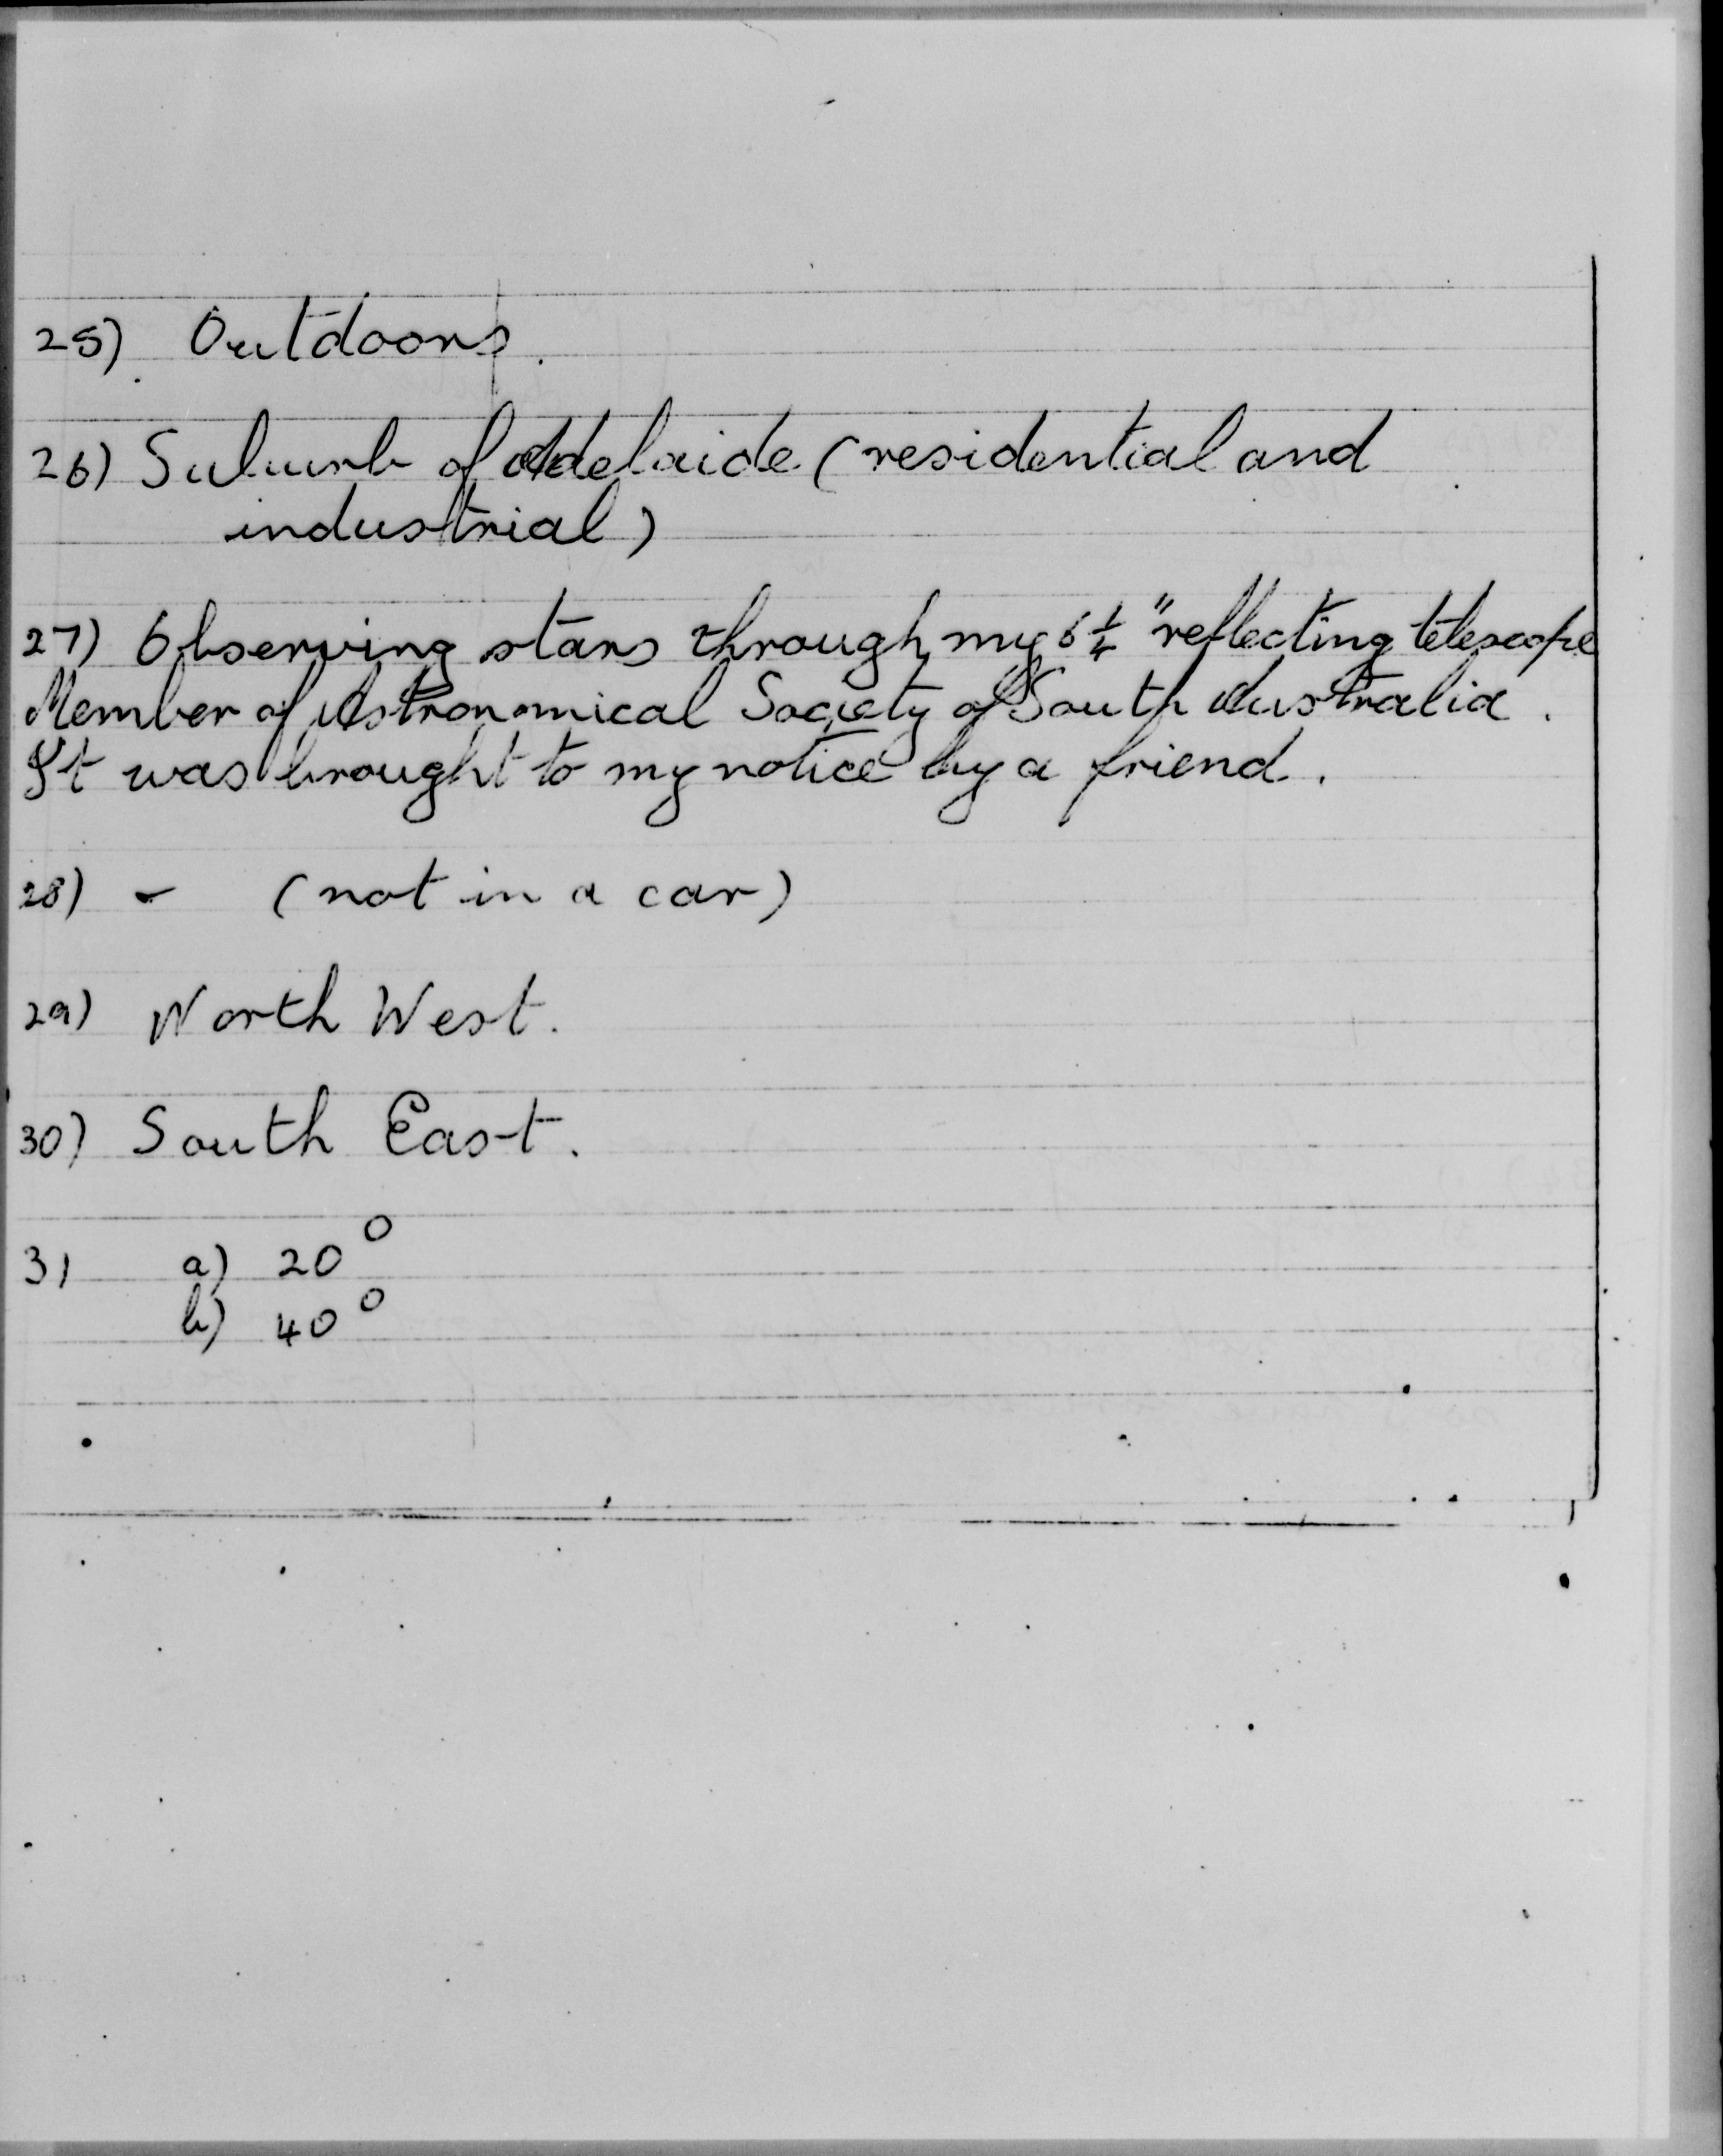 25) Outdoors.
26) Suburb of Adelaide (residential and
industrial)
27) Observing stars through my 6 1/4" reflecting telescope
Member of Astronomical Society of South Australia.
It was brought to my notice by a friend.
28) - (not in a car)
29) North West.
30) South East.
31 a) 20°
b) 40°